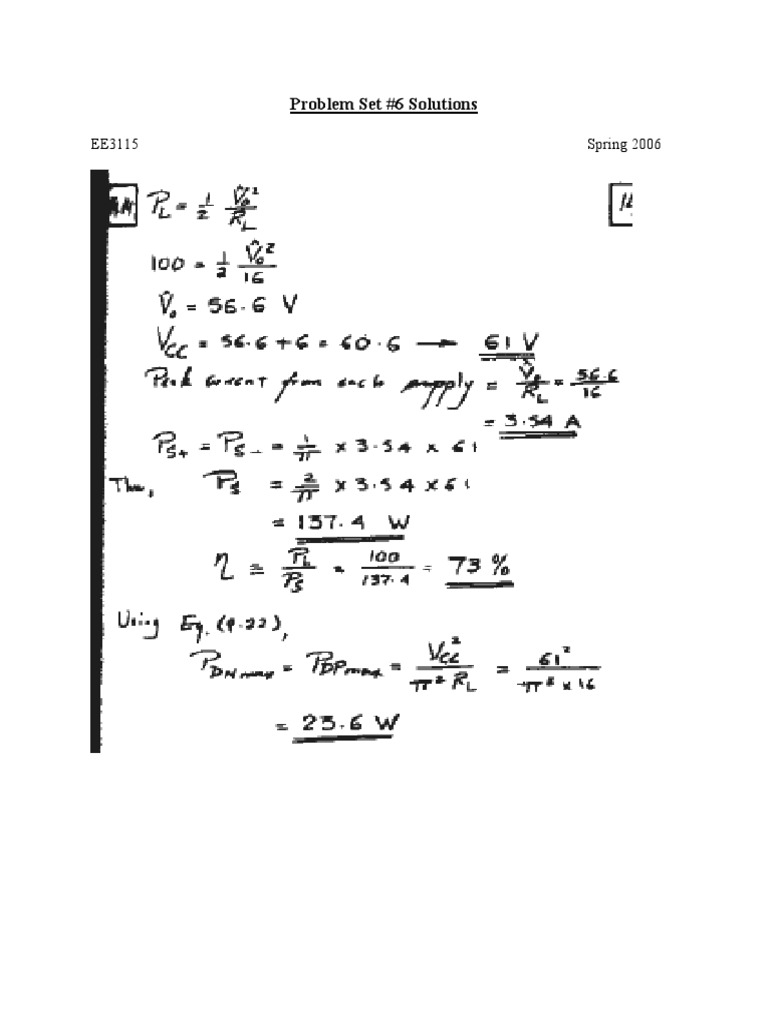 Problem Set #6 Solutions
EE3115 Spring 2006
P_L = 1/2 V̂o²/R_L
100 = 1/2 V̂o²/16
V̂o = 56.6 V
Vcc = 56.6 + 6 = 60.6 → 61 V
Peak current from each supply = V̂o/R_L = 56.6/16
= 3.54 A
P_S+ = P_S- = 1/π × 3.54 × 61
Thus, P_S = 2/π × 3.54 × 61
= 137.4 W
η = P_L/P_S = 100/137.4 = 73 %
Using Eq. (9.22),
P_DNmax = P_DPmax = Vcc²/π² R_L = 61²/π² × 16
= 23.6 W